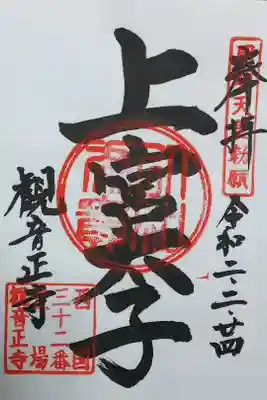 奉拝
令和二、二、廿四
上宮太子
観音正寺
西国
三十二番
場
観音正寺
天拝勅願